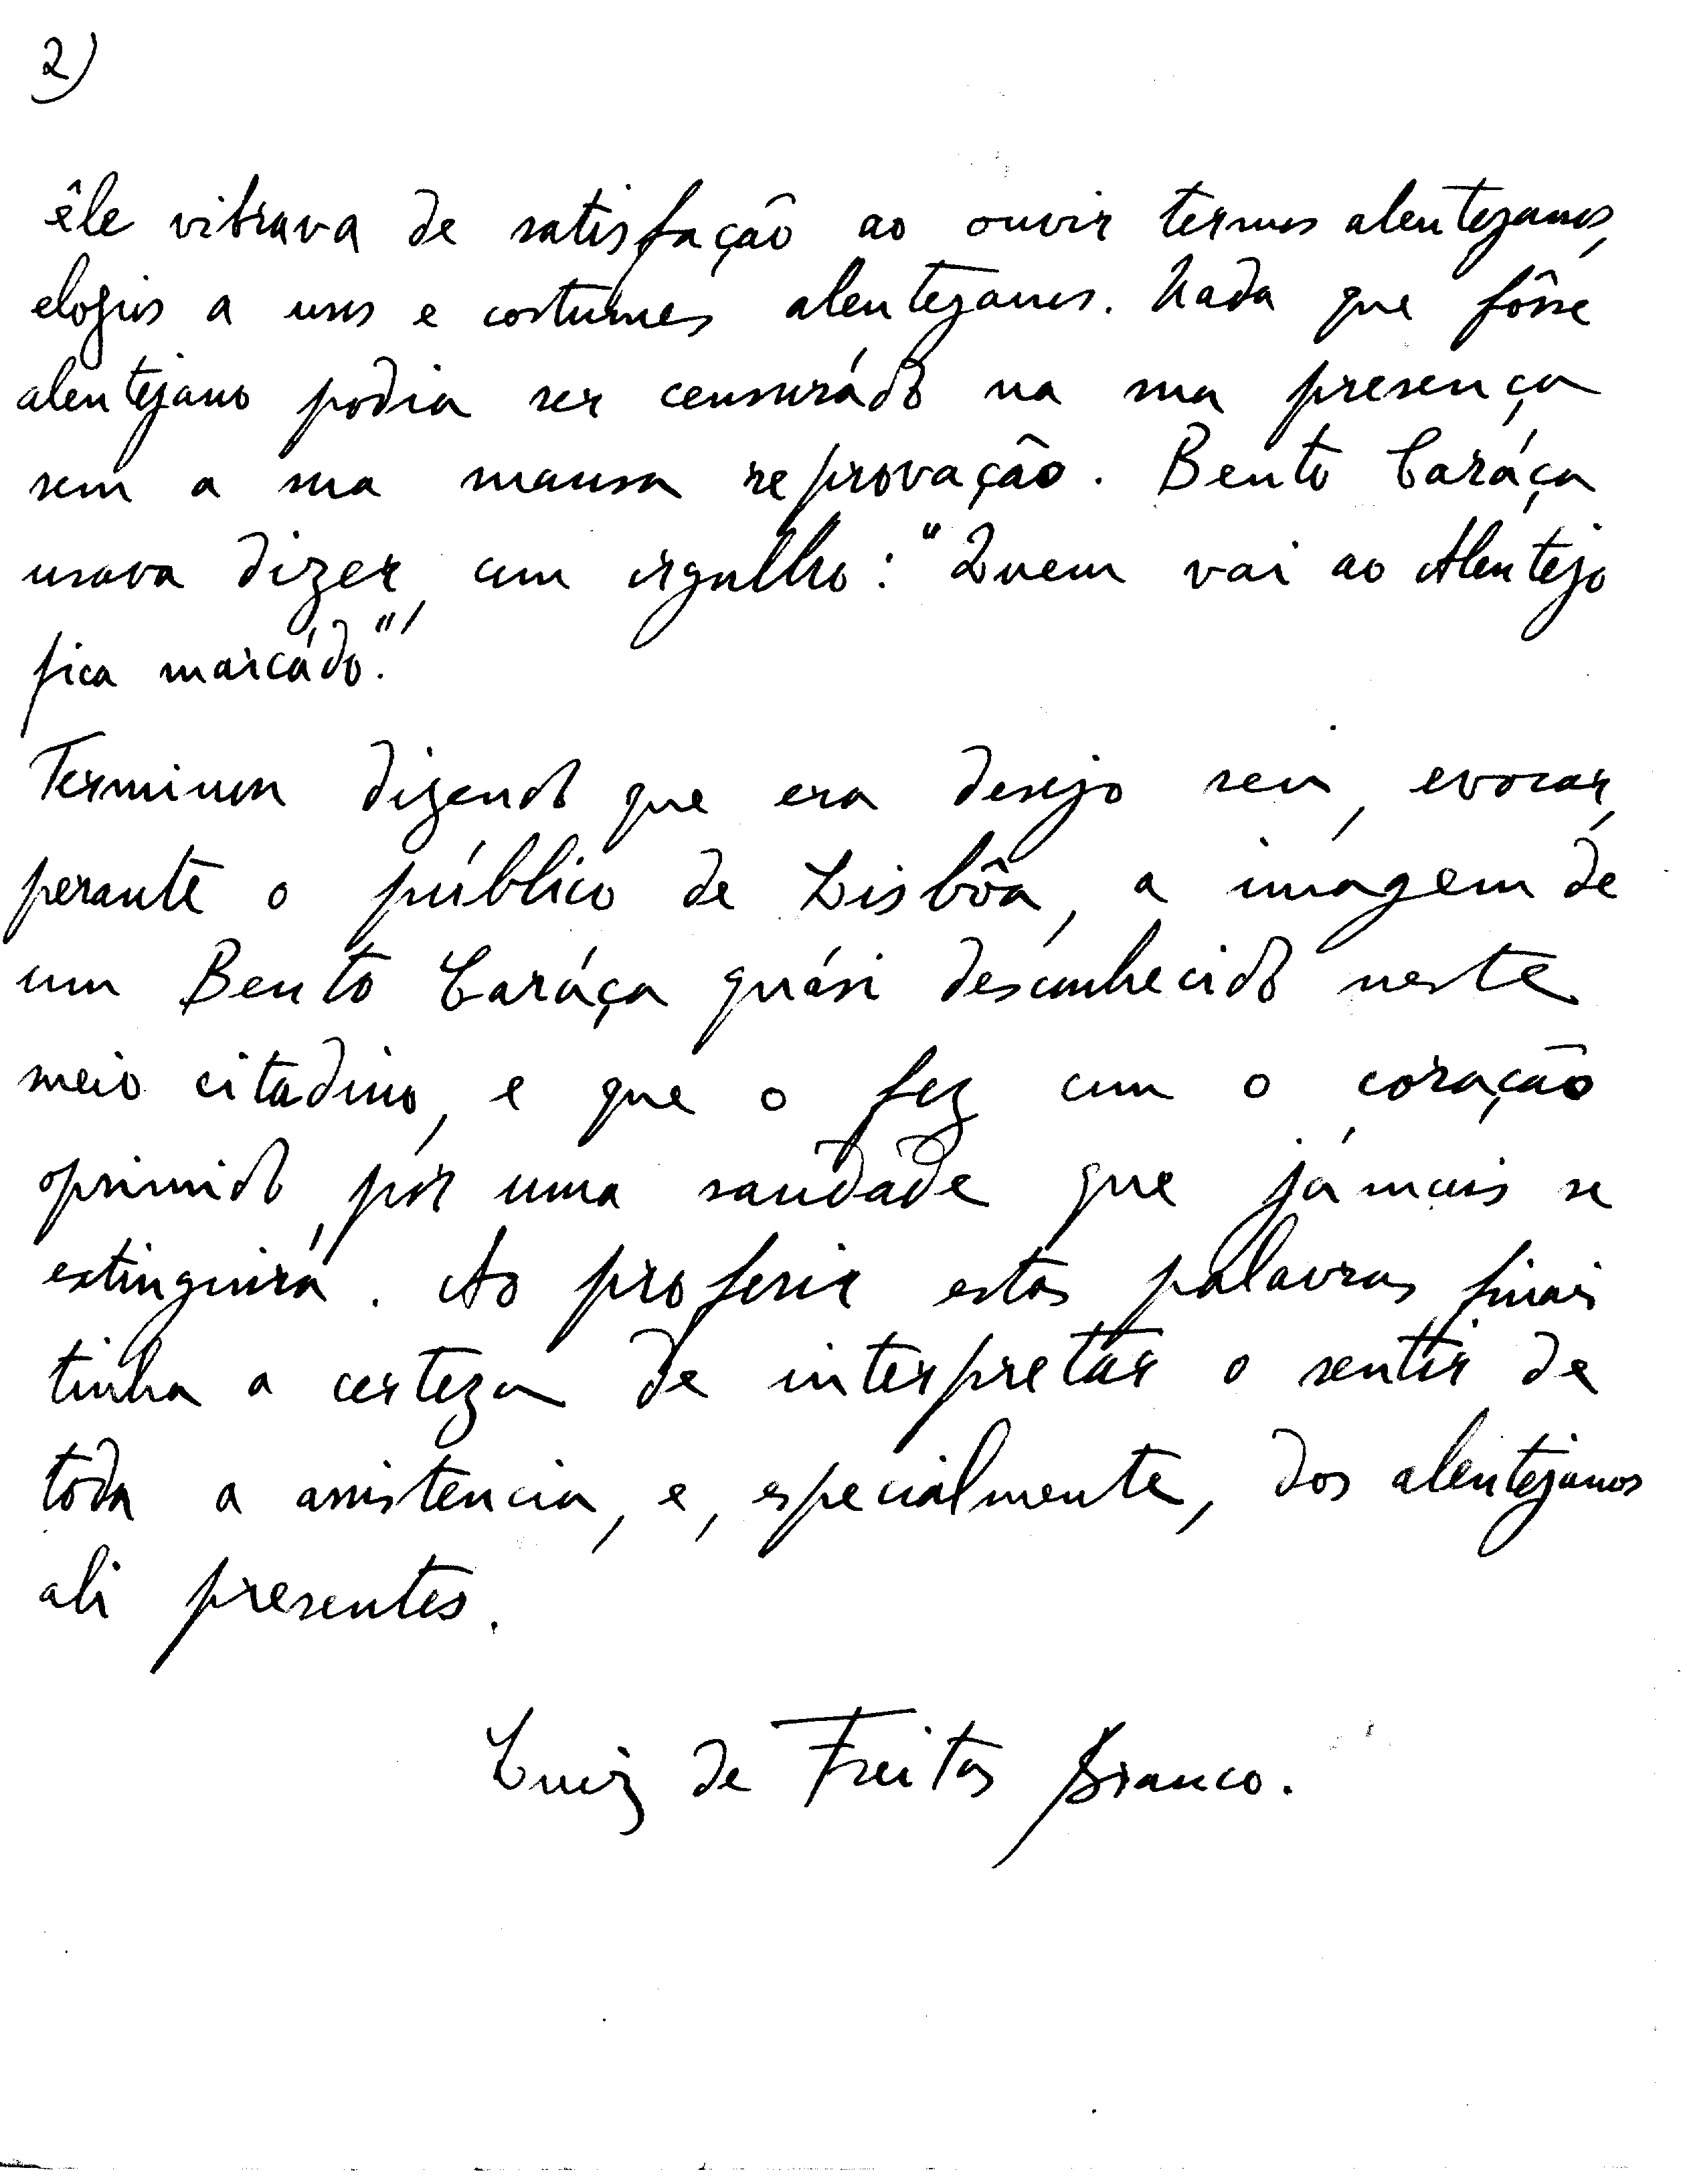 2)
êle vibrava de satisfação ao ouvir termos alentejanos,
elogios a usos e costumes alentejanos. Nada que fôsse
alentejano podia ser censurádo na sua presença
sem a sua mansa reprovação. Bento Caráça
usava dizer, com orgulho: "Quem vai ao Alentejo
fica marcádo."
Terminou dizendo que era desejo seu, evocar,
perante o público de Lisbôa, a imágem de
um Bento Caráça quási desconhecido neste
meio citadino, e que o fez com o coração
oprimido, pôr uma saudade que jámais se
extinguirá. Ao proferir estas palavras finais
tinha a certeza de interpretar o sentir de
toda a assistencia, e, especialmente, dos alentejanos
ali presentes.
Luiz de Freitas Branco.